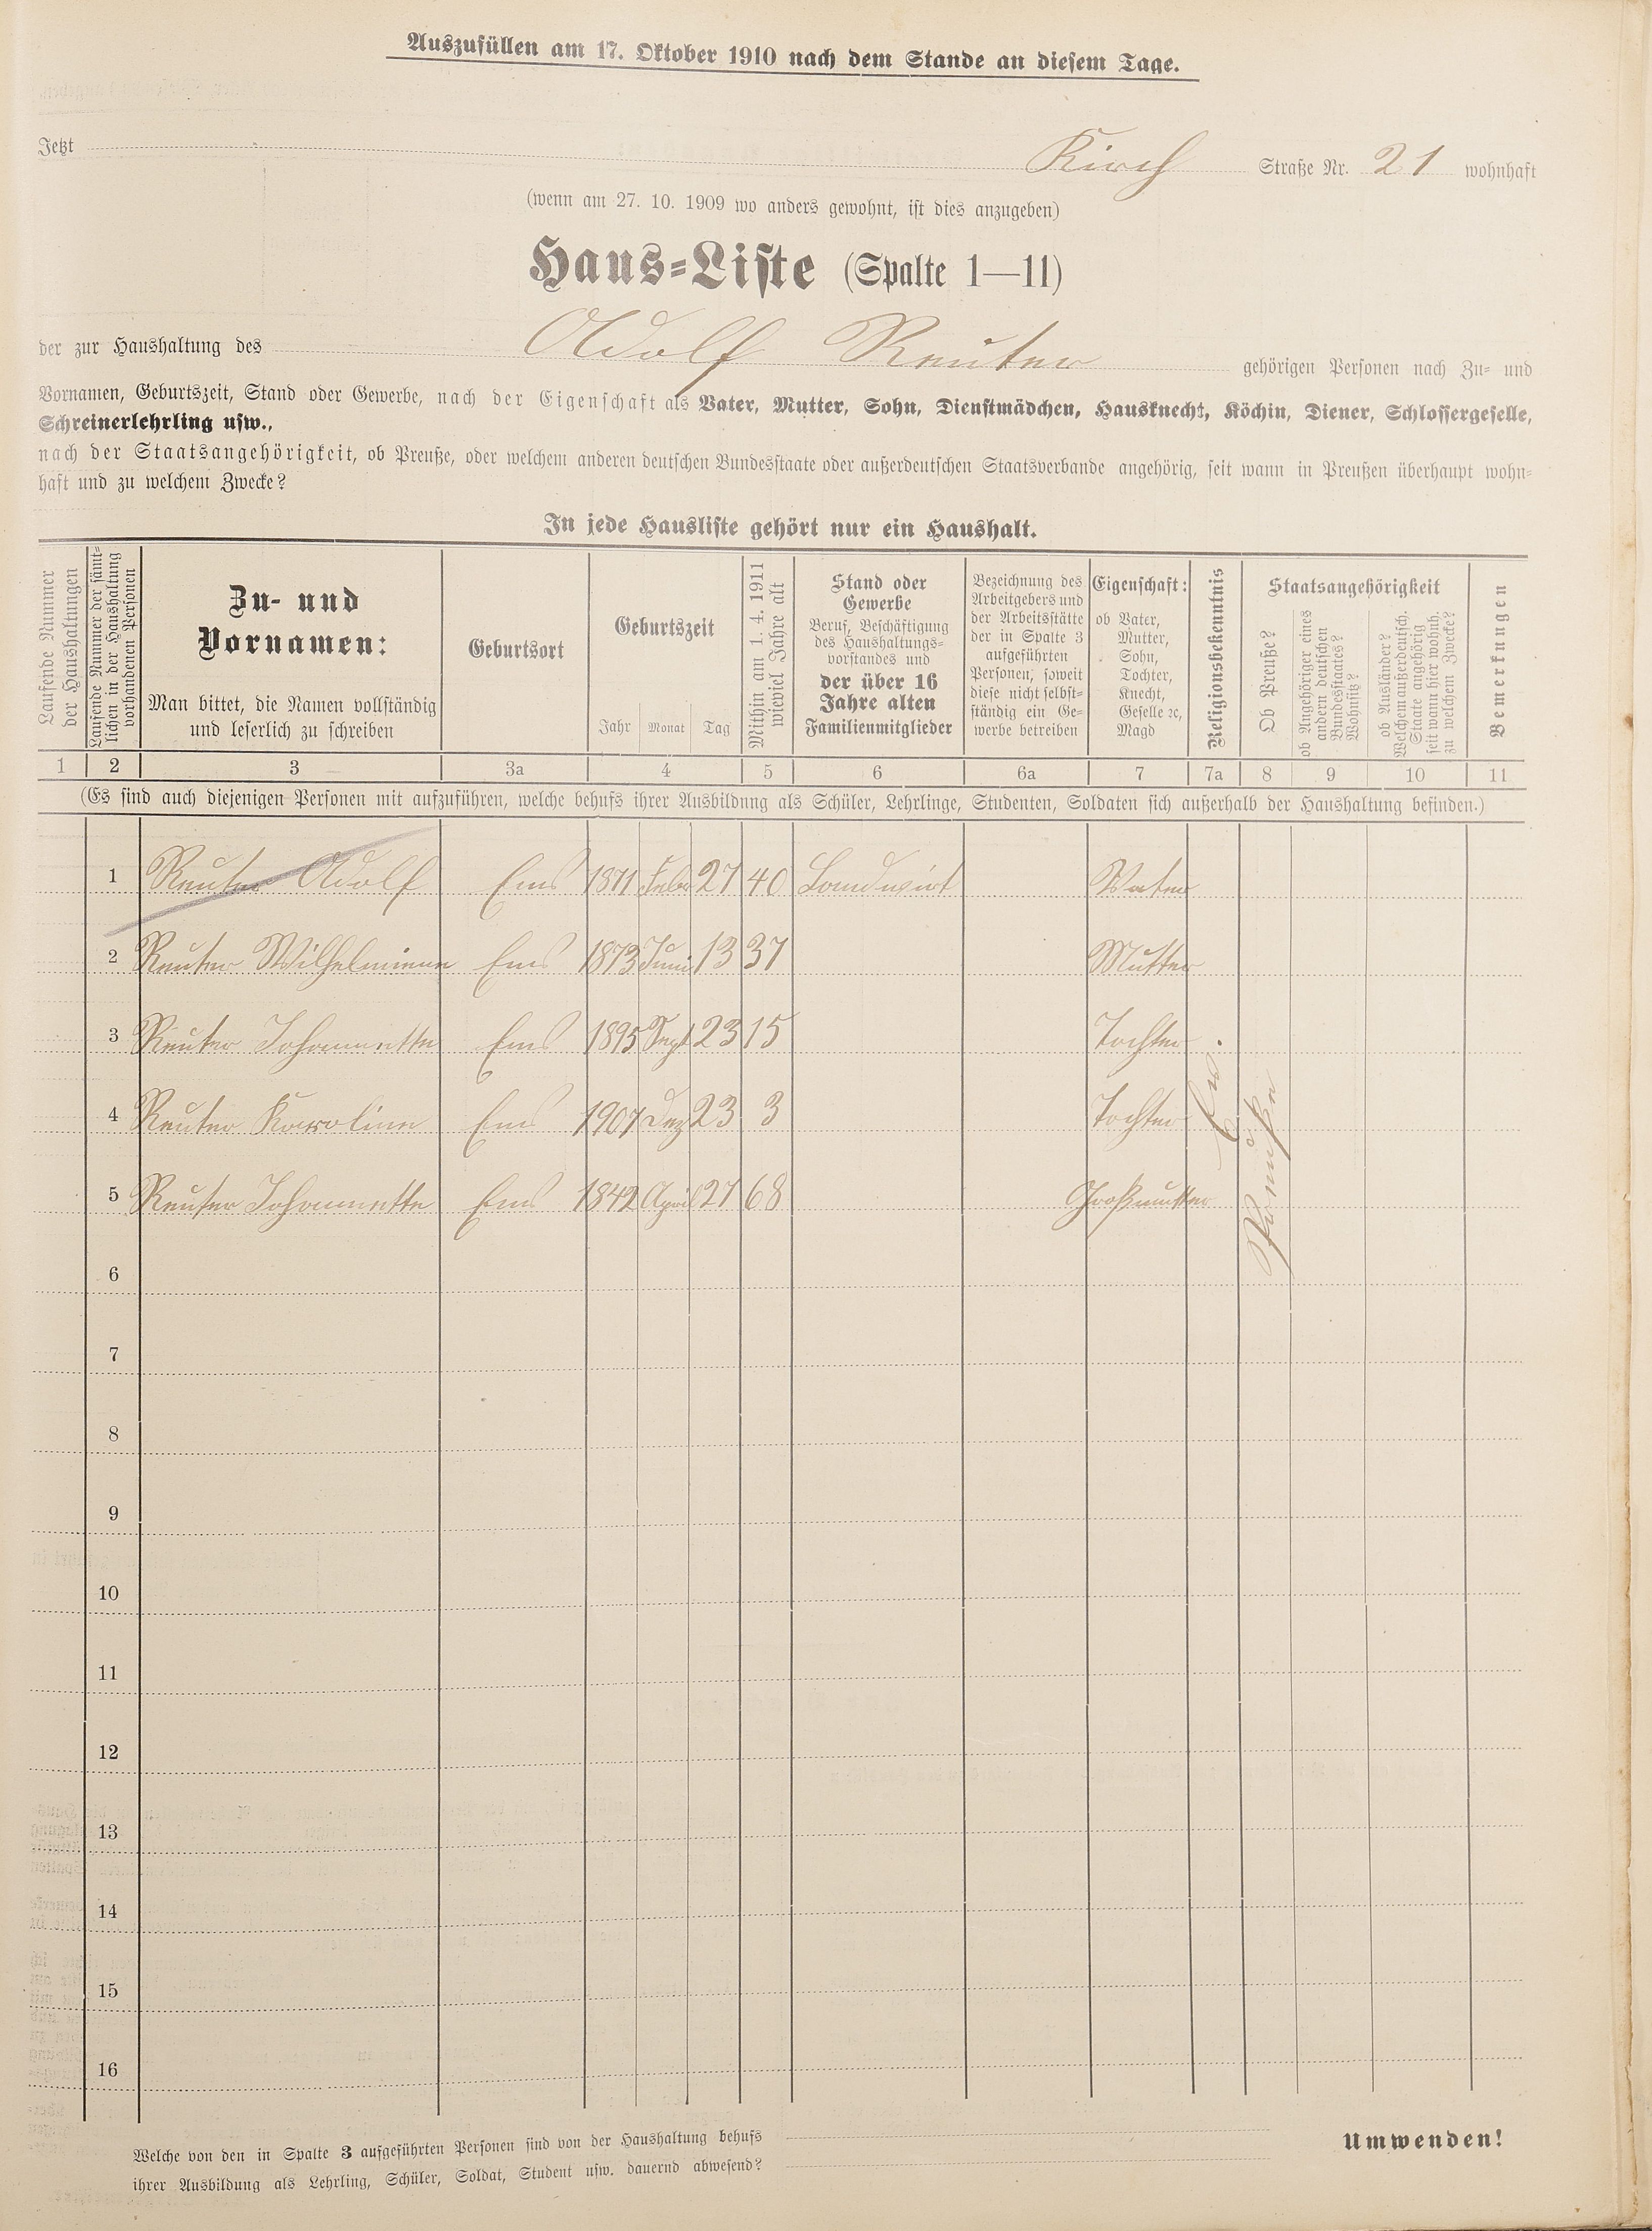 Auszufüllen am 17. Oktober 1910 nach dem Stande an diesem Tage.
Jetzt Kirch Straße Nr. 21 wohnhaft
(wenn am 27. 10. 1909 wo anders gewohnt, ist dies anzugeben)
Haus-Liste (Spalte 1—11)
der zur Haushaltung des Adolf Reuter gehörigen Personen nach Zu- und
Vornamen, Geburtszeit, Stand oder Gewerbe, nach der Eigenschaft als Vater, Mutter, Sohn, Dienstmädchen, Hausknecht, Köchin, Diener, Schlossergeselle,
Schreinerlehrling usw.,
nach der Staatsangehörigkeit, ob Preuße, oder welchem anderen deutschen Bundesstaate oder außerdeutschen Staatsverbande angehörig, seit wann in Preußen überhaupt wohn-
haft und zu welchem Zwecke?
In jede Hausliste gehört nur ein Haushalt.
Laufende Nummer
der Haushaltungen
Laufende Nummer der sämt-
lichen in der Haushaltung
vorhandenen Personen
Zu- und
Vornamen:
Man bittet, die Namen vollständig
und leserlich zu schreiben
Geburtsort
Geburtszeit
Jahr Monat Tag
Mithin am 1. 4. 1911
wieviel Jahre alt
Stand oder
Gewerbe
Beruf, Beschäftigung
des Haushaltungs-
vorstandes und
der über 16
Jahre alten
Familienmitglieder
Bezeichnung des
Arbeitgebers und
der Arbeitsstätte
der in Spalte 3
aufgeführten
Personen, soweit
diese nicht selbst-
ständig ein Ge-
werbe betreiben
Eigenschaft:
ob Vater,
Mutter,
Sohn,
Tochter,
Knecht,
Geselle ꝛc,
Magd
Religionsbekenntnis
Staatsangehörigkeit
Ob Preuße?
ob Angehöriger eines
andern deutschen
Bundesstaates?
Wohnsitz?
ob Ausländer?
Welchem außerdeutsch.
Staate angehörig
seit wann hier wohnh.
zu welchem Zwecke?
Bemerkungen
1 2 3 3a 4 5 6 6a 7 7a 8 9 10 11
(Es sind auch diejenigen Personen mit aufzuführen, welche behufs ihrer Ausbildung als Schüler, Lehrlinge, Studenten, Soldaten sich außerhalb der Haushaltung befinden.)
1 Reuter Adolf Ems 1871 Febr 27 40 Landwirt Vater
2 Reuter Wilhelmine Ems 1873 Juni 13 37 Mutter
3 Reuter Johannette Ems 1895 Sept 23 15 Tochter
4 Reuter Karoline Ems 1907 Dez 23 3 Tochter
5 Reuter Johannette Ems 1842 April 27 68 Großmutter
Ev.
Preuße
6
7
8
9
10
11
12
13
14
15
16
Welche von den in Spalte 3 aufgeführten Personen sind von der Haushaltung behufs
ihrer Ausbildung als Lehrling, Schüler, Soldat, Student usw. dauernd abwesend?
Umwenden!